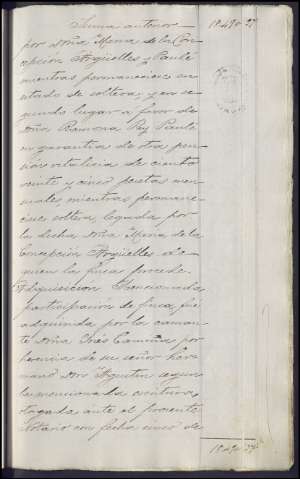 Suma anterior 18.490 27
por doña María de la Con-
cepción Argüelles y Paulé
mientras permaneciese en
estado de soltera, y en se-
gundo lugar a favor de
doña Ramona Rey Paulé
en garantía de otra pen-
sión vitalicia de ciento
veinte y cinco pesetas men-
suales, mientras permane-
ciese soltera, legada por
la dicha doña María de la
Concepción Argüelles de
quien la finca procede.
Adquisición Mencionada
participación de finca fué
adquirida por la causan-
te doña Inés por
herencia de su señor her-
mano don Agustín segun
la mencionada escritura
otogada ante el presente
Notario con fecha cinco de
18.490 27